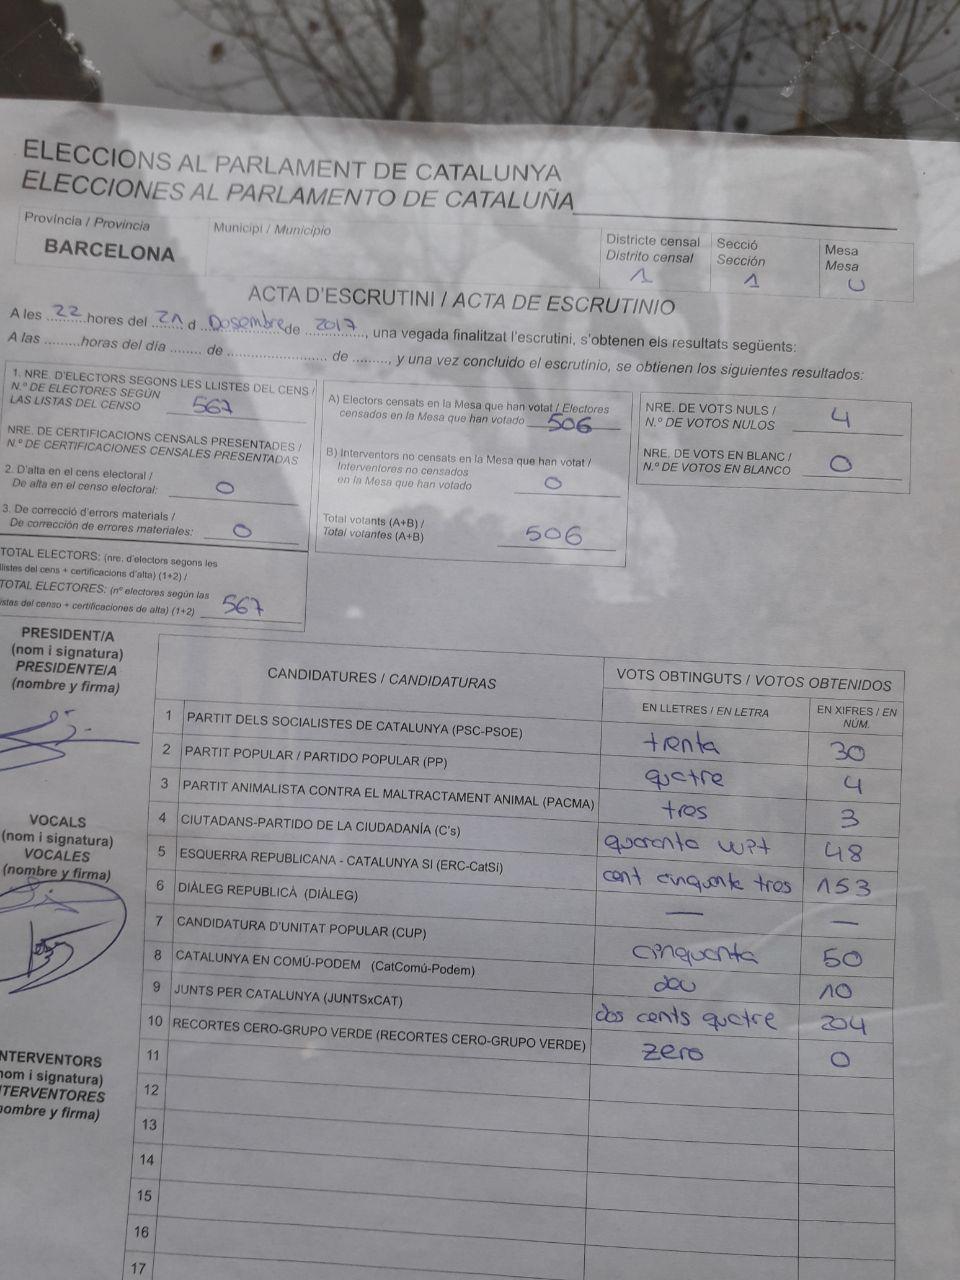 ELECCIONS AL PARLAMENT DE CATALUNYA
ELECCIONES AL PARLAMENTO DE CATALUÑA
Província / Provincia
BARCELONA
Municipi / Municipio
Districte censal
Distrito censal
1
Secció
Sección
1
Mesa
Mesa
U
ACTA D'ESCRUTINI / ACTA DE ESCRUTINIO
A les 22 hores del 21 d Dosembre de 2017, una vegada finalitzat l'escrutini, s'obtenen els resultats següents:
A las .........horas del día ........ de ......................... de ........., y una vez concluido el escrutinio, se obtienen los siguientes resultados:
1. NRE. D'ELECTORS SEGONS LES LLISTES DEL CENS /
N.º DE ELECTORES SEGÚN
LAS LISTAS DEL CENSO 567
NRE. DE CERTIFICACIONS CENSALS PRESENTADES /
N.º DE CERTIFICACIONES CENSALES PRESENTADAS
2. D'alta en el cens electoral /
De alta en el censo electoral: 0
3. De correcció d'errors materials /
De corrección de errores materiales: 0
TOTAL ELECTORS: (nre. d'electors segons les
llistes del cens + certificacions d'alta) (1+2) /
TOTAL ELECTORES: (nº electores según las
istas del censo + certificaciones de alta) (1+2) 567
A) Electors censats en la Mesa que han votat / Electores
censados en la Mesa que han votado 506
B) Interventors no censats en la Mesa que han votat /
Interventores no censados
en la Mesa que han votado 0
Total votants (A+B) /
Total votantes (A+B) 506
NRE. DE VOTS NULS /
N.º DE VOTOS NULOS 4
NRE. DE VOTS EN BLANC /
N.º DE VOTOS EN BLANCO 0
PRESIDENT/A
(nom i signatura)
PRESIDENTE/A
(nombre y firma)
VOCALS
(nom i signatura)
VOCALES
(nombre y firma)
NTERVENTORS
nom i signatura)
TERVENTORES
nombre y firma)
CANDIDATURES / CANDIDATURAS
VOTS OBTINGUTS / VOTOS OBTENIDOS
EN LLETRES / EN LETRA
EN XIFRES / EN
NÚM.
1 PARTIT DELS SOCIALISTES DE CATALUNYA (PSC-PSOE) trenta 30
2 PARTIT POPULAR / PARTIDO POPULAR (PP) quatre 4
3 PARTIT ANIMALISTA CONTRA EL MALTRACTAMENT ANIMAL (PACMA) tres 3
4 CIUTADANS-PARTIDO DE LA CIUDADANÍA (C's) quaranta vuit 48
5 ESQUERRA REPUBLICANA - CATALUNYA SI (ERC-CatSí) cent cinquanta tres 153
6 DIÀLEG REPUBLICÀ (DIÀLEG) — —
7 CANDIDATURA D'UNITAT POPULAR (CUP) cinquanta 50
8 CATALUNYA EN COMÚ-PODEM (CatComú-Podem) deu 10
9 JUNTS PER CATALUNYA (JUNTSxCAT) dos cents quatre 204
10 RECORTES CERO-GRUPO VERDE (RECORTES CERO-GRUPO VERDE) zero 0
11
12
13
14
15
16
17